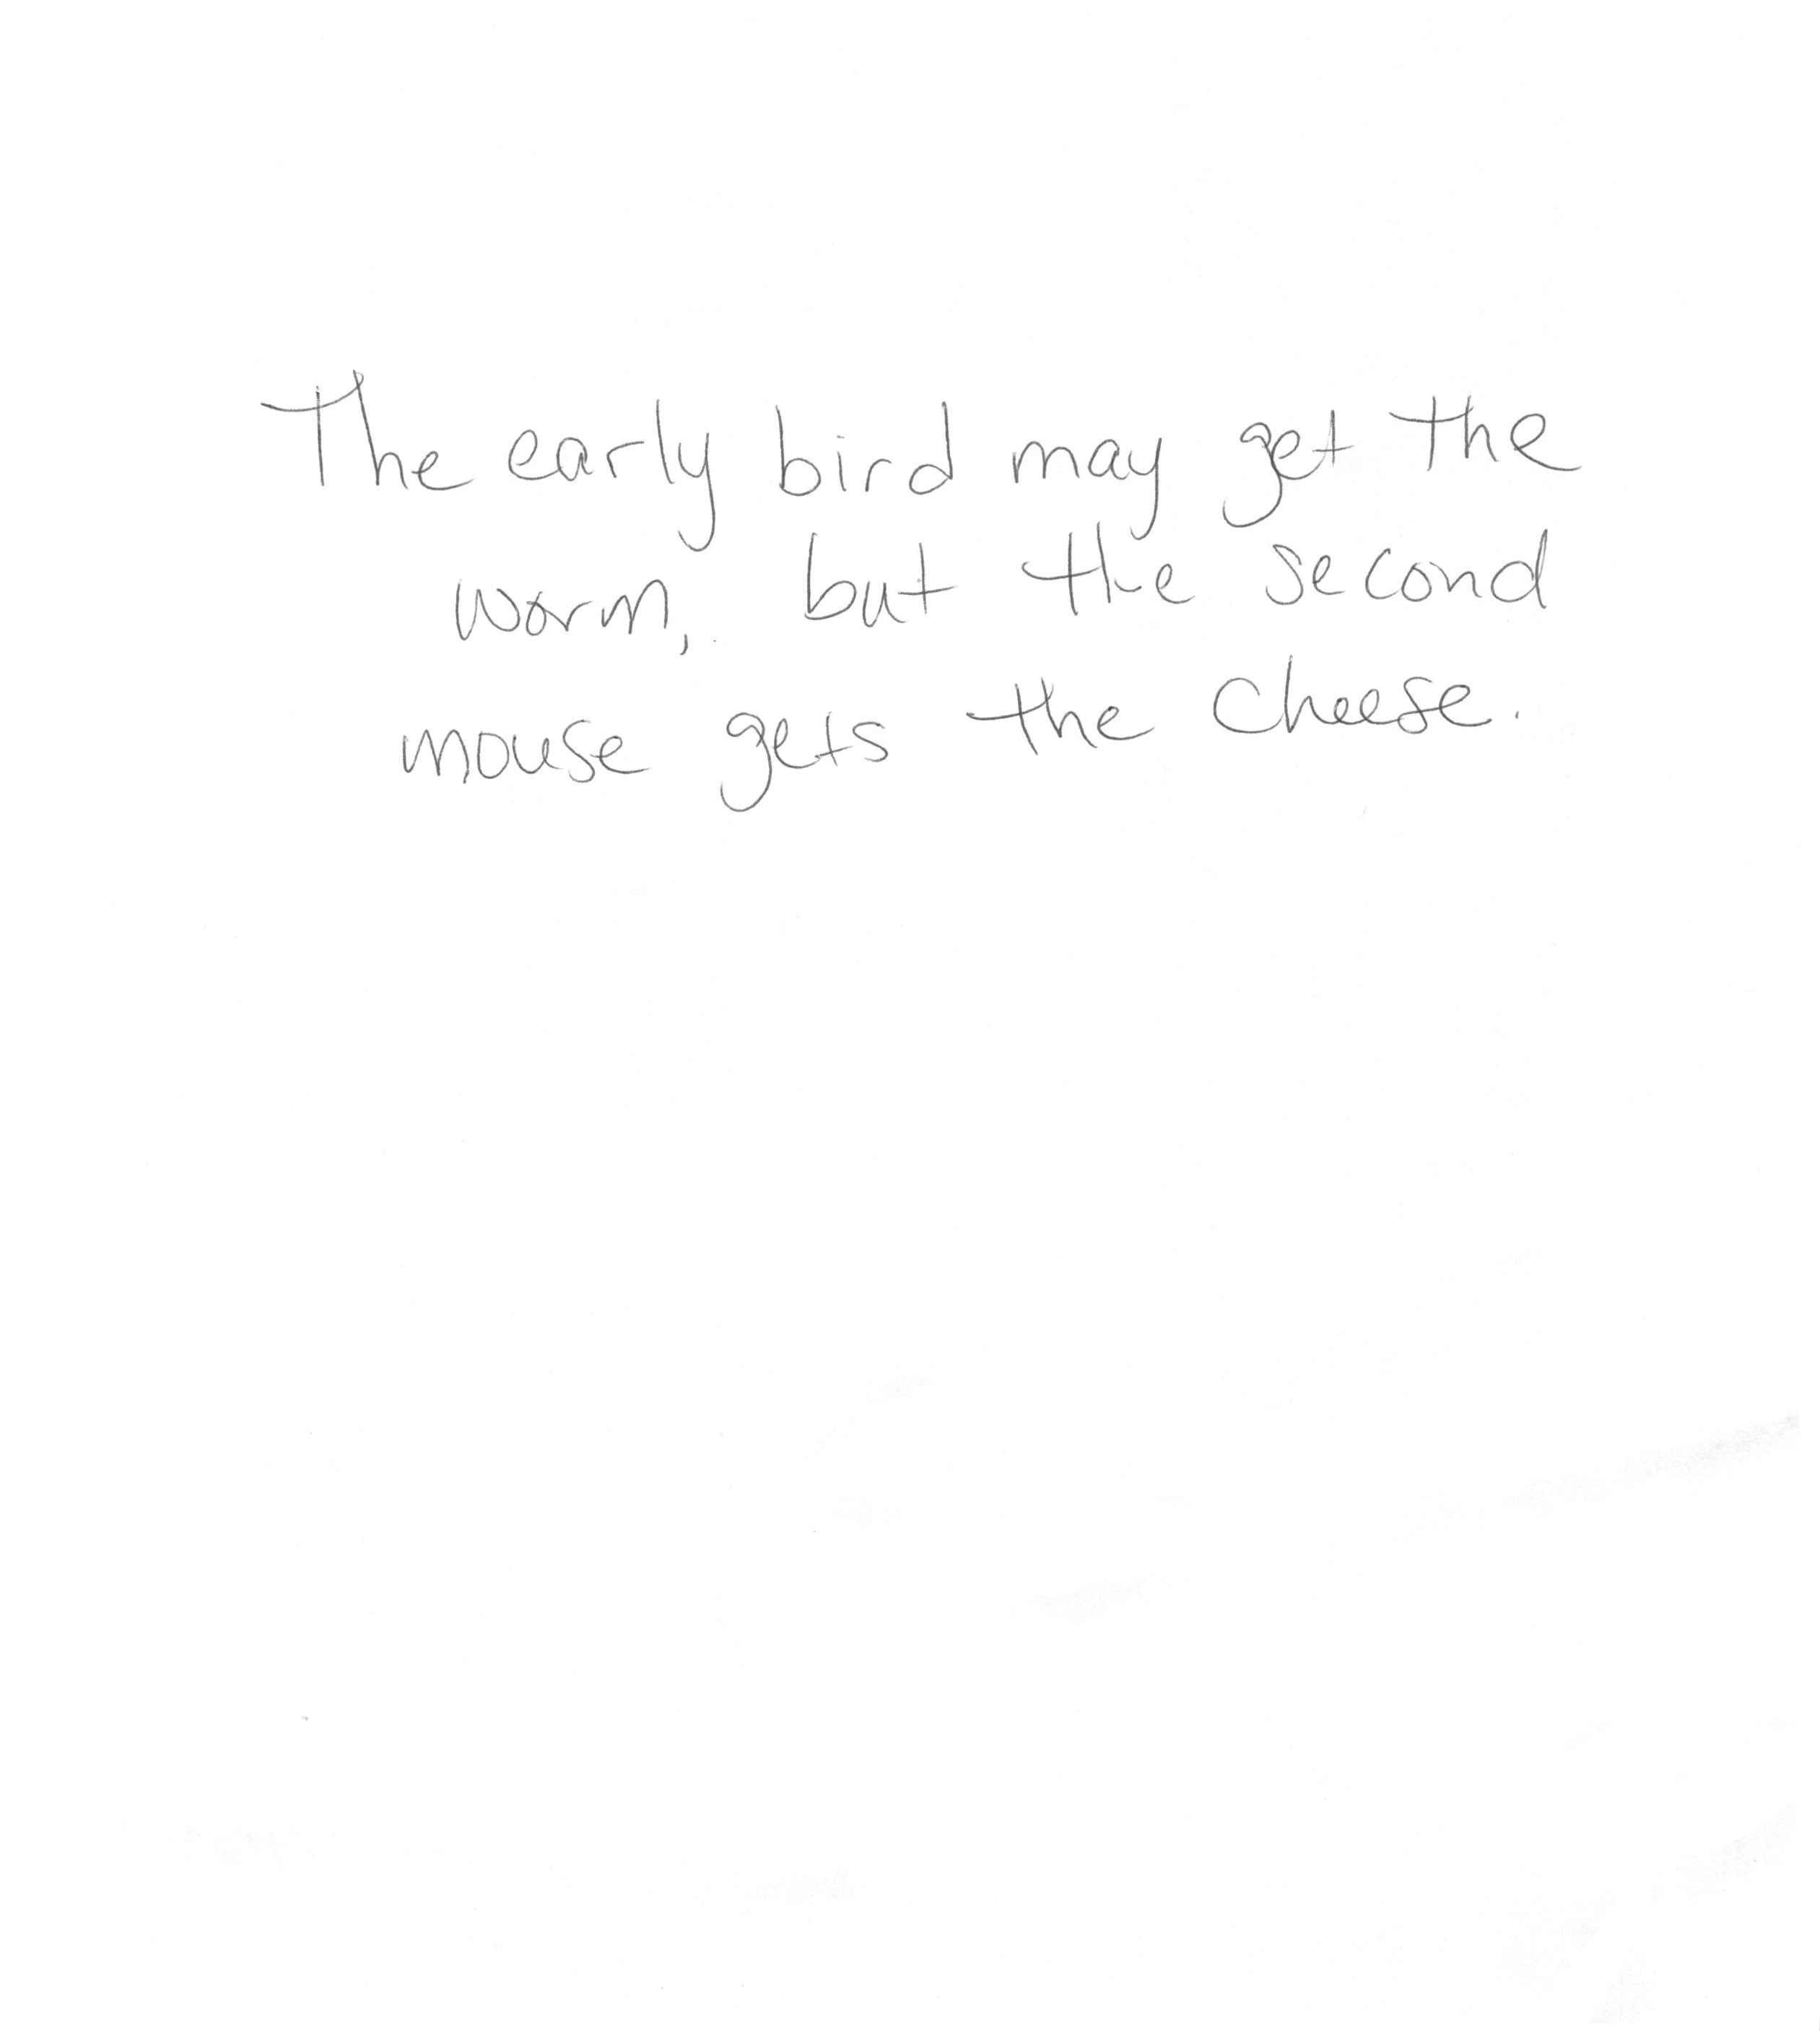 The early bird may get the
worm, but the second
mouse gets the cheese.